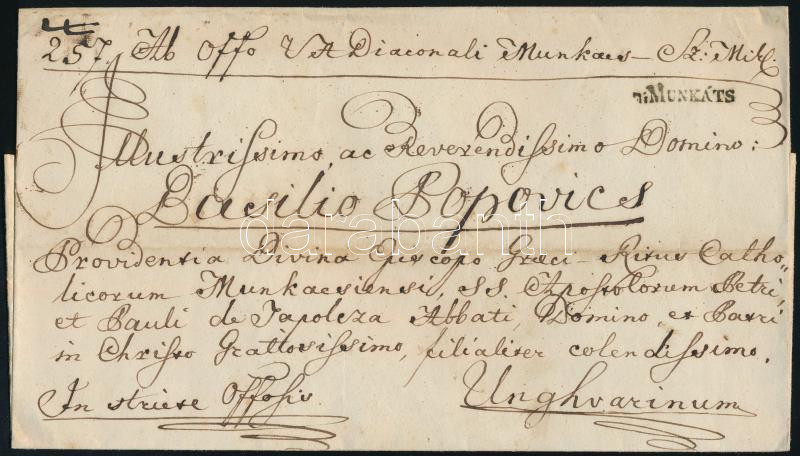 257. Ab Offo V A Diaconali Munkacs – Sz: Mik.
MUNKÁTS
Illustrissimo, ac Reverendissimo Domino:
Basilio Popovics
darabanth
Providentia Divina Episcopo Graeci – Ritus Catho„
licorum Munkacsiensi, SS Apostolorum Petri,
et Pauli de Tapolcza Abbati, Domino, et Patri
in Christo Grattosissimo, filialiter colendissimo.
In stricte Offosis
Unghvarinum